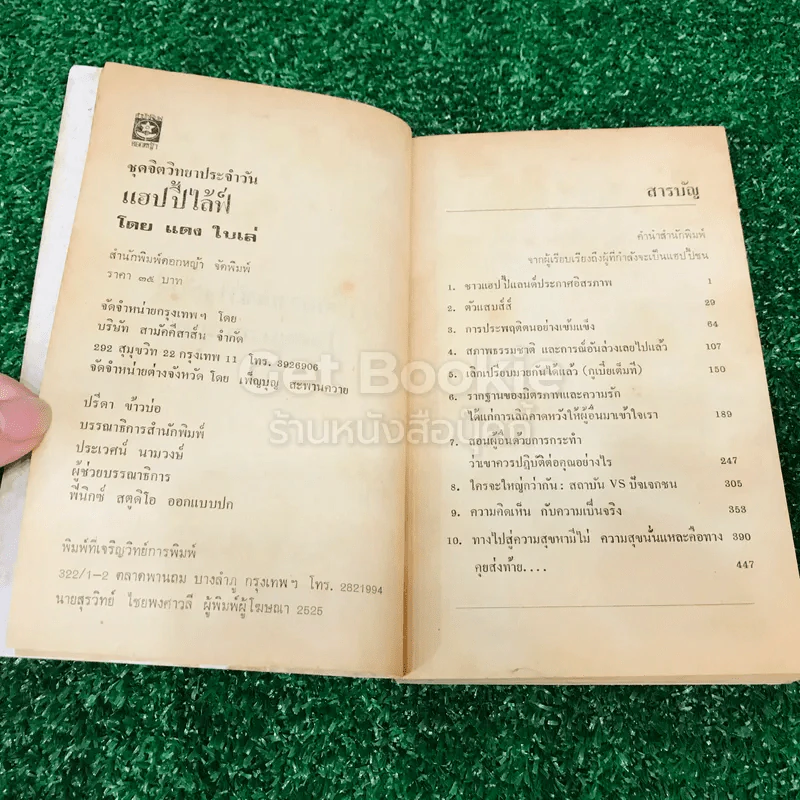 ดอกหญ้า
ชุดจิตวิทยาประจำวัน
แฮปปี้ไล้ฟ์
โดย แดง ใบเล่
สำนักพิมพ์ดอกหญ้า จัดพิมพ์
ราคา ๓๕ บาท
จัดจำหน่ายกรุงเทพฯ โดย
บริษัท สามัคคีสาส์น จำกัด
292 สุขุมวิท 22 กรุงเทพ 11 โทร. 3926906
จัดจำหน่ายต่างจังหวัด โดย เพ็ญบุญ สะพานควาย
ปรีดา ข้าวบ่อ
บรรณาธิการสำนักพิมพ์
ประเวศน์ นามวงษ์
ผู้ช่วยบรรณาธิการ
ฟีนิกซ์ สตูดิโอ ออกแบบปก
พิมพ์ที่เจริญวิทย์การพิมพ์
322/1-2 ตลาดพานถม บางลำภู กรุงเทพฯ โทร. 2821994
นายสุรวิทย์ ไชยพงศาวลี ผู้พิมพ์ผู้โฆษณา 2525
สารบัญ
คำนำสำนักพิมพ์
จากผู้เรียบเรียงถึงผู้ที่กำลังจะเป็นแฮปปี้ชน
1. ชาวแฮปปี้แลนด์ประกาศอิสรภาพ 1
2. ตัวแสบส์ส์ 29
3. การประพฤติตนอย่างเข้มแข็ง 64
4. สภาพธรรมชาติ และการณ์อันล่วงเลยไปแล้ว 107
5. เลิกเปรียบมวยกันได้แล้ว (กูเบื่อเต็มที) 150
6. รากฐานของมิตรภาพและความรัก
ได้แก่การเลิกคาดหวังให้ผู้อื่นมาเข้าใจเรา 189
7. สอนผู้อื่นด้วยการกระทำ
ว่าเขาควรปฏิบัติต่อคุณอย่างไร 247
8. ใครจะใหญ่กว่ากัน: สถาบัน VS ปัจเจกชน 305
9. ความคิดเห็น กับความเป็นจริง 353
10. ทางไปสู่ความสุขหามีไม่ ความสุขนั้นแหละคือทาง 390
คุยส่งท้าย.... 447
Get Bookie
ร้านหนังสือบุ๊คกี้